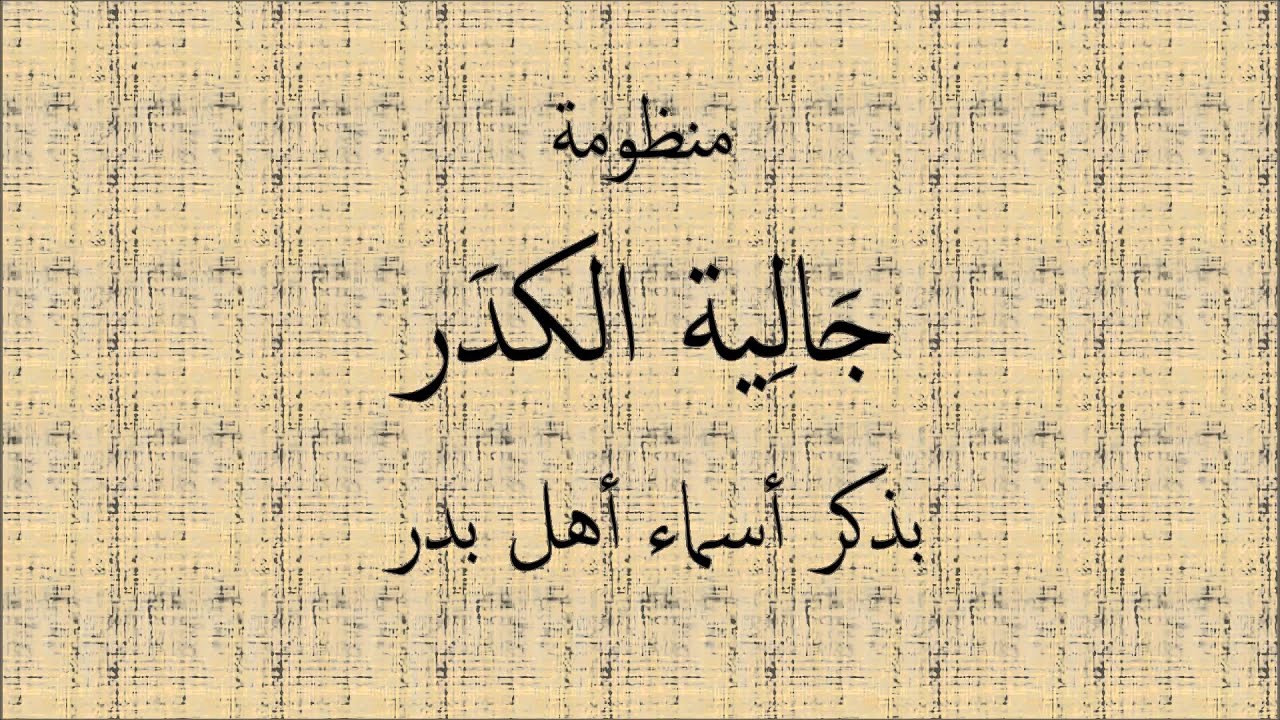 منظومة
جَالِية الكدَر
بذكر أسماء أهل بدر